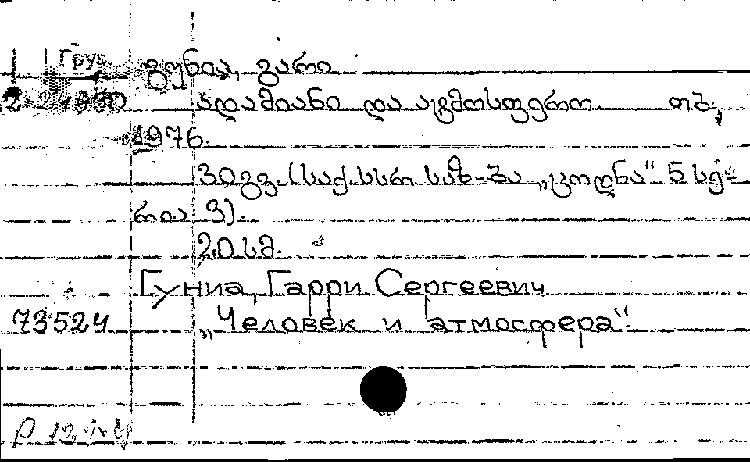 Груз
გუნია, გარი
ადამიანი და ატმოსფერო. თბ.,
1976.
30 გვ. (საქ. სსრ საზ-ბა „ცოდნა“. 5 სე-
რია 3).
20 სმ.
Гуниа, Гарри Сергеевич
73524 „Человек и атмосфера“.